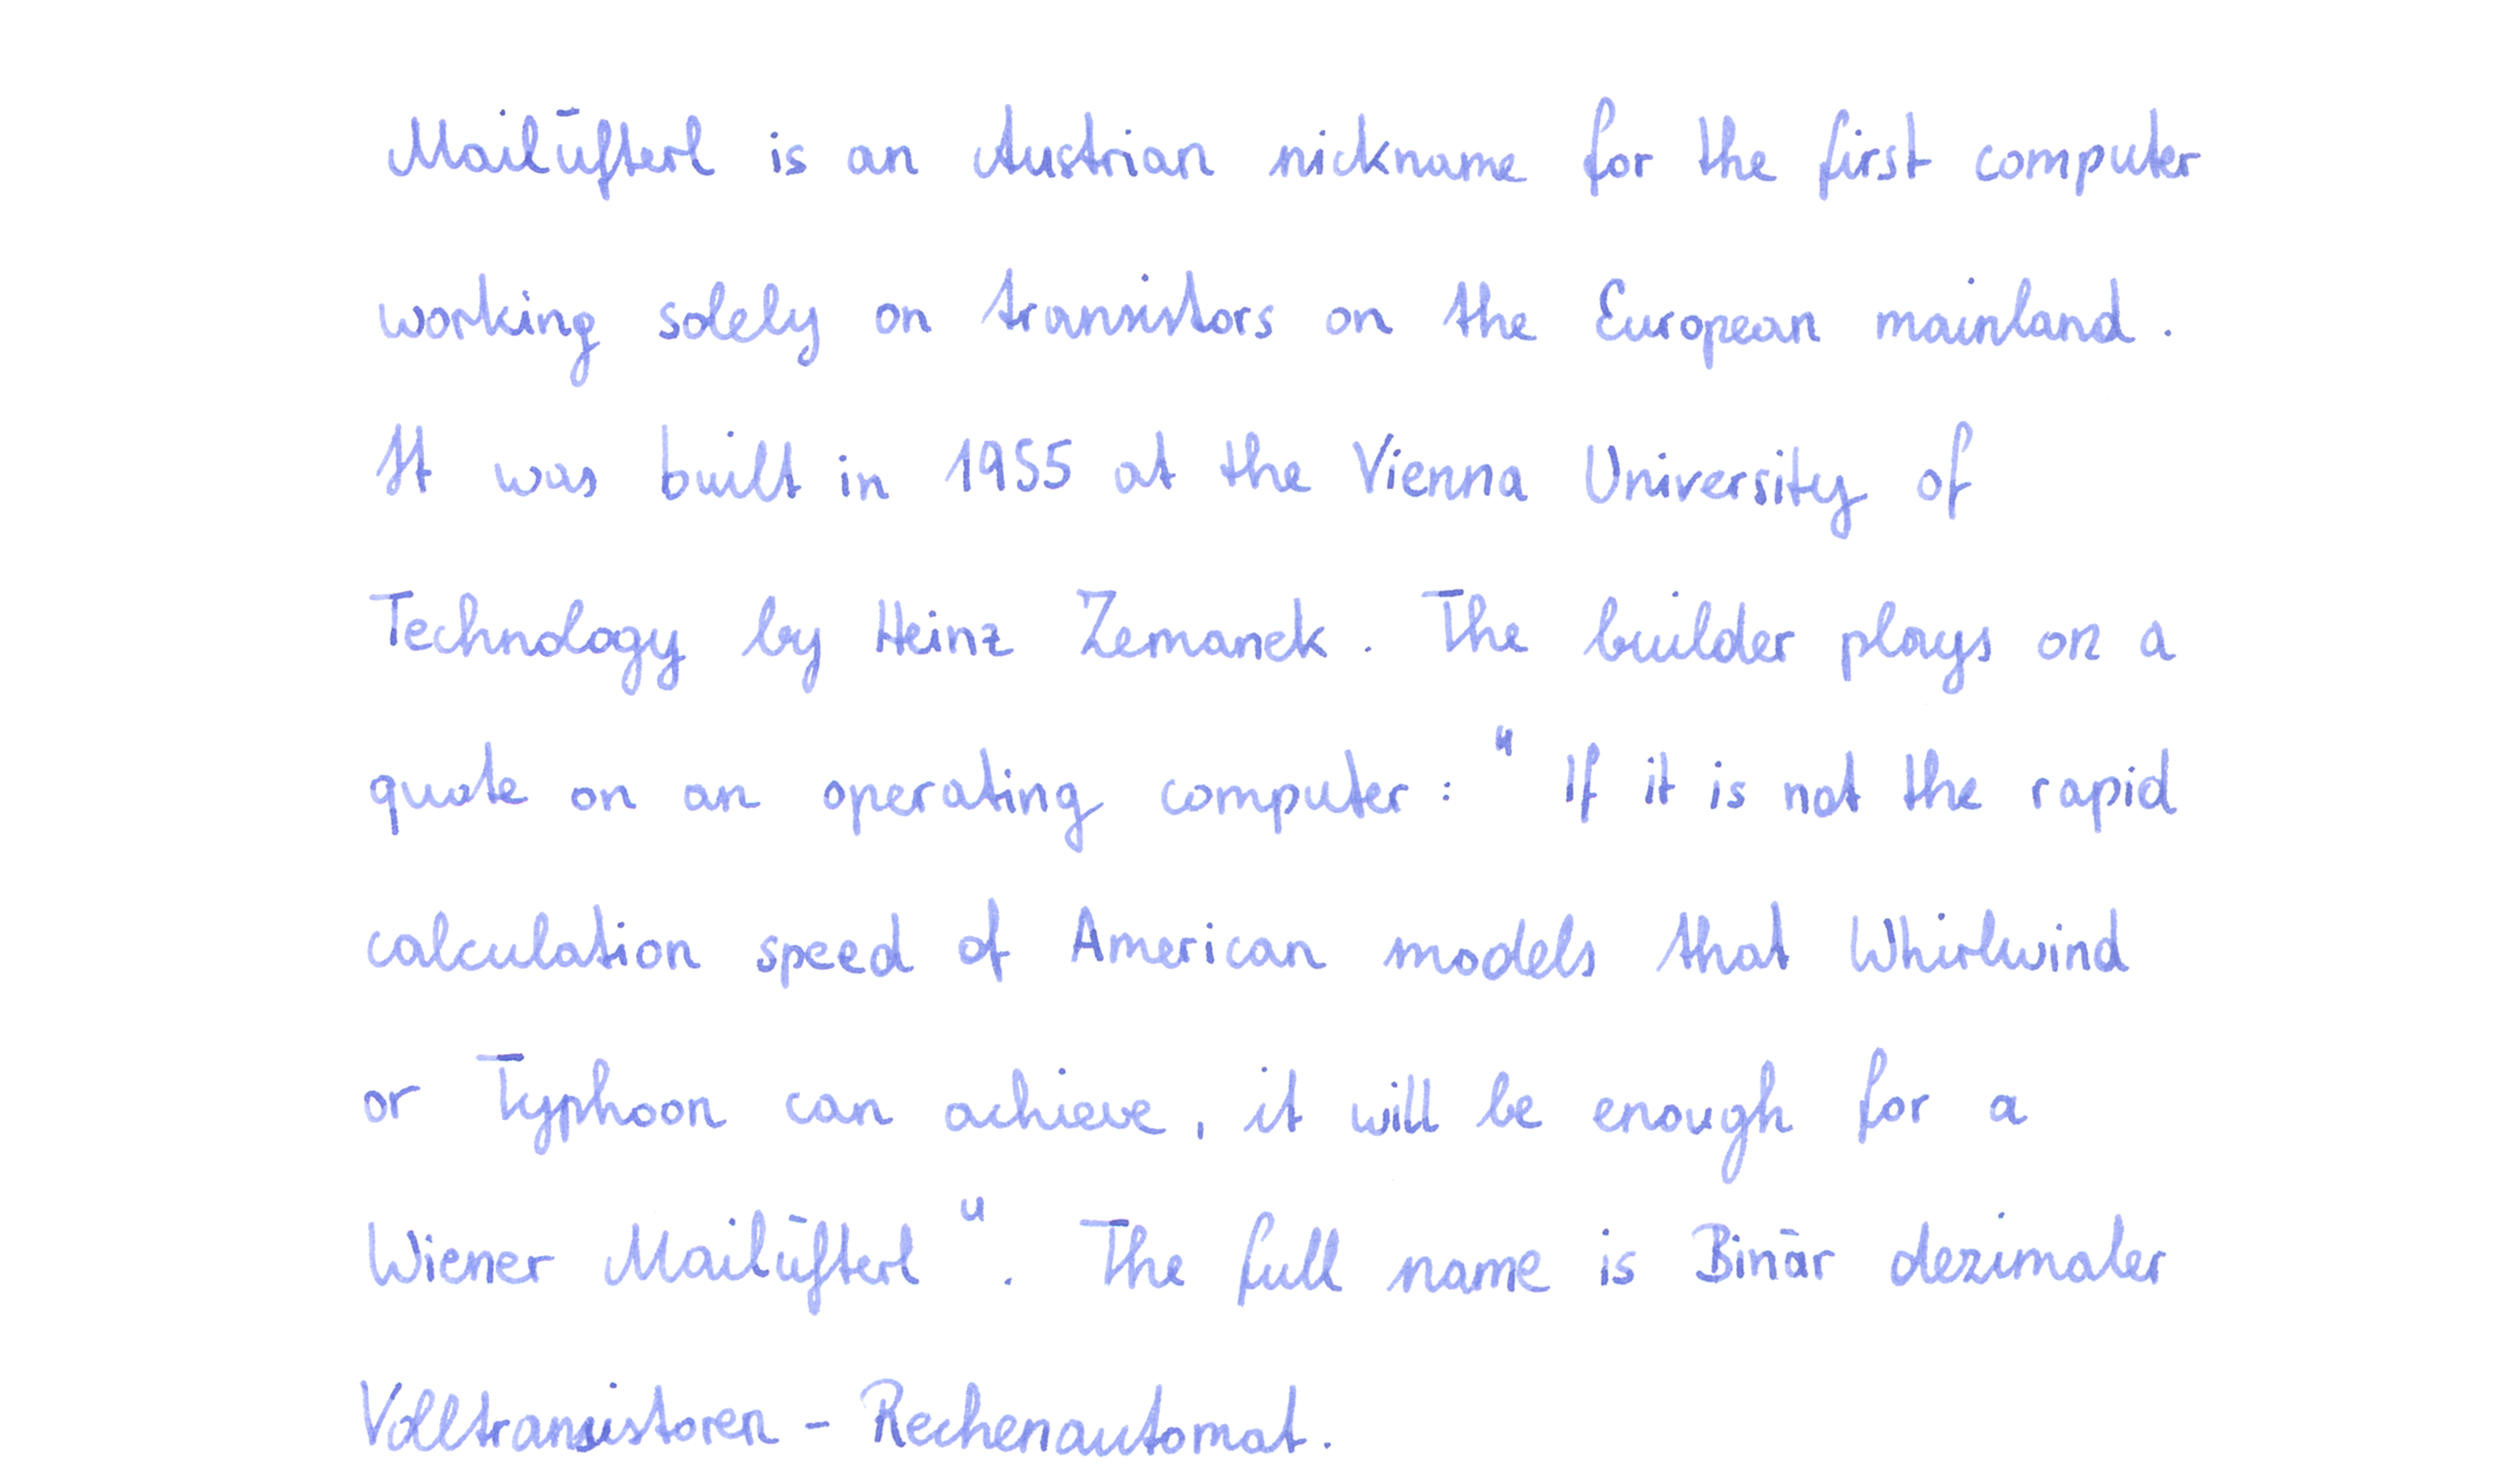 Mailüfterl is an Austrian nickname for the first computer
working solely on transistors on the European mainland.
It was built in 1955 at the Vienna University of
Technology by Heinz Zemanek. The builder plays on a
quote on an operating computer: "If it is not the rapid
calculation speed of American models that Whirlwind
or Typhoon can achieve, it will be enough for a
Wiener Mailüfterl". The full name is Binär dezimaler
Volltransistoren - Rechenautomat.